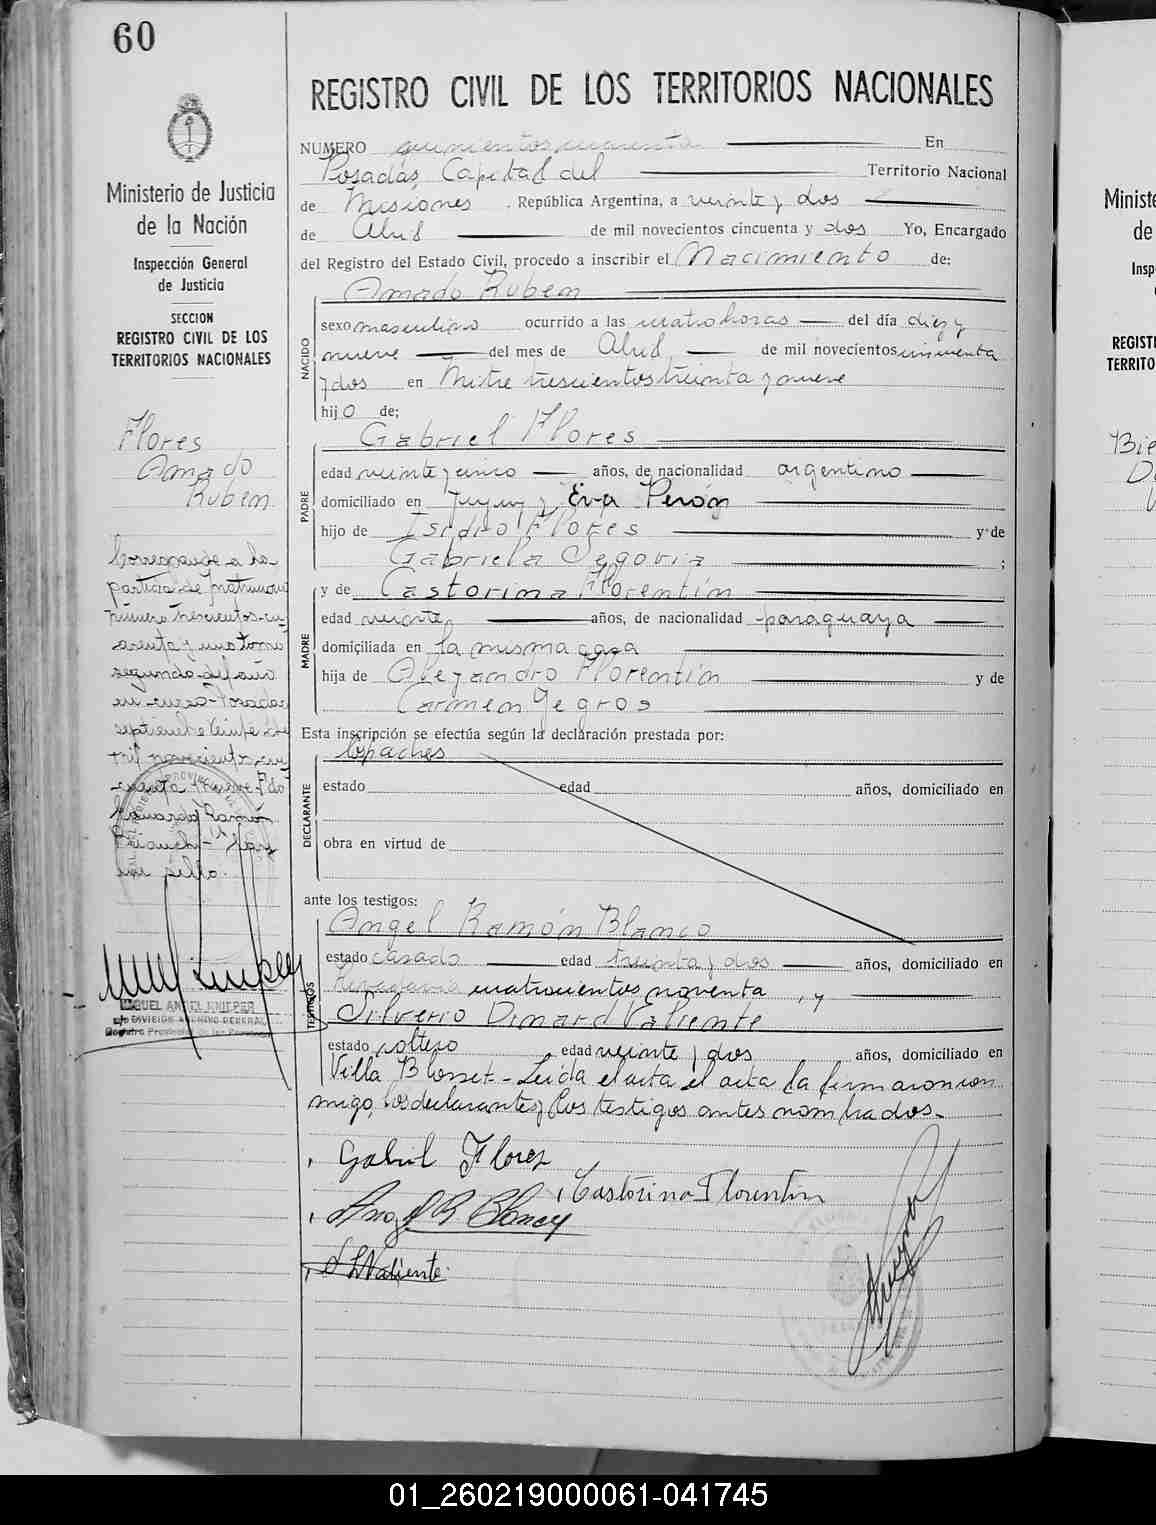 60
REGISTRO CIVIL DE LOS TERRITORIOS NACIONALES
Ministerio de Justicia
de la Nación
Inspección General
de Justicia
SECCION
REGISTRO CIVIL DE LOS
TERRITORIOS NACIONALES
Flores
Amado
Ruben
Corresponde a la
partida de matrimonio
número trescientos cu
arenta y uno tomo
segundo del año
en curso - Posadas
septiembre veinte de
mil novecientos cin
cuenta y nueve Fdo
Ramón
Bianchi - Hay
un sello.
MIGUEL ANGEL KNIPER
DIVISION ARCHIVO GENERAL
Registro Provincial de las Personas
NUMERO quinientos cuarenta En
Posadas, Capital del Territorio Nacional
de Misiones . República Argentina, a veinte y dos
de Abril de mil novecientos cincuenta y dos Yo, Encargado
del Registro del Estado Civil, procedo a inscribir el Nacimiento de:
Amado Ruben
NACIDO
sexo masculino ocurrido a las cuatro horas del día diez y
nueve del mes de Abril de mil novecientos cincuenta
y dos en Mitre trescientos treinta y nueve
hijo de;
Gabriel Flores
PADRE
edad veinte y cinco años, de nacionalidad argentino
domiciliado en Jujuy y Eva Perón
hijo de Isidro Flores y de
Gabriela Segovia ;
y de Castorina Florentín
MADRE
edad veinte años, de nacionalidad paraguaya
domiciliada en la misma casa
hija de Alejandro Florentín y de
Carmen Yegros
Esta inscripción se efectúa según la declaración prestada por:
los padres
DECLARANTE
estado edad años, domiciliado en
obra en virtud de
ante los testigos:
Angel Ramón Blanco
TESTIGOS
estado casado edad treinta y dos años, domiciliado en
Rivadavia cuatrocientos noventa , y
Silverio Dinard Valiente
estado soltero edad veinte y dos años, domiciliado en
Villa Blosset - Leida el acta el acta la firmaron con
migo, los declarantes y los testigos antes nombrados.
Gabriel Flores
Castorina Florentin
Angel R Blanco
S. D. Valiente
Ministe
de
Insp
REGISTI
TERRITO
Bie
01_260219000061-041745